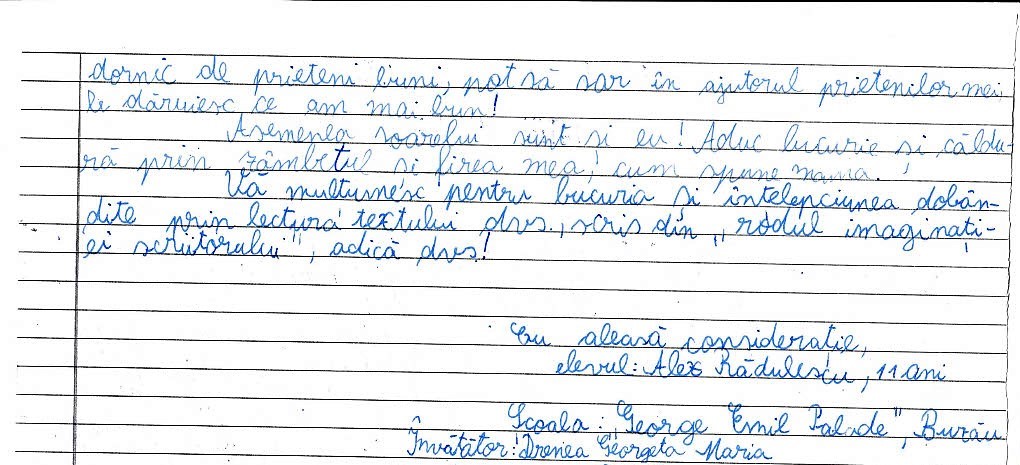 dornic de prieteni buni, pot să sar în ajutorul prietenilor mei
le dăruiesc ce am mai bun!
Asemenea soarelui sunt și eu! Aduc bucurie și căldu-
ră prin zâmbetul și firea mea, cum spune mama.
Vă mulțumesc pentru bucuria și înțelepciunea dobân-
dite prin lectura textului dvs., scris din „rodul imaginați-
ei scriitorului", adică dvs!
Cu aleasă considerație,
elevul: Alex Rădulescu, 11 ani
Școala: „George Emil Palade", Buzău
Învățător: Drenea Georgeta Maria